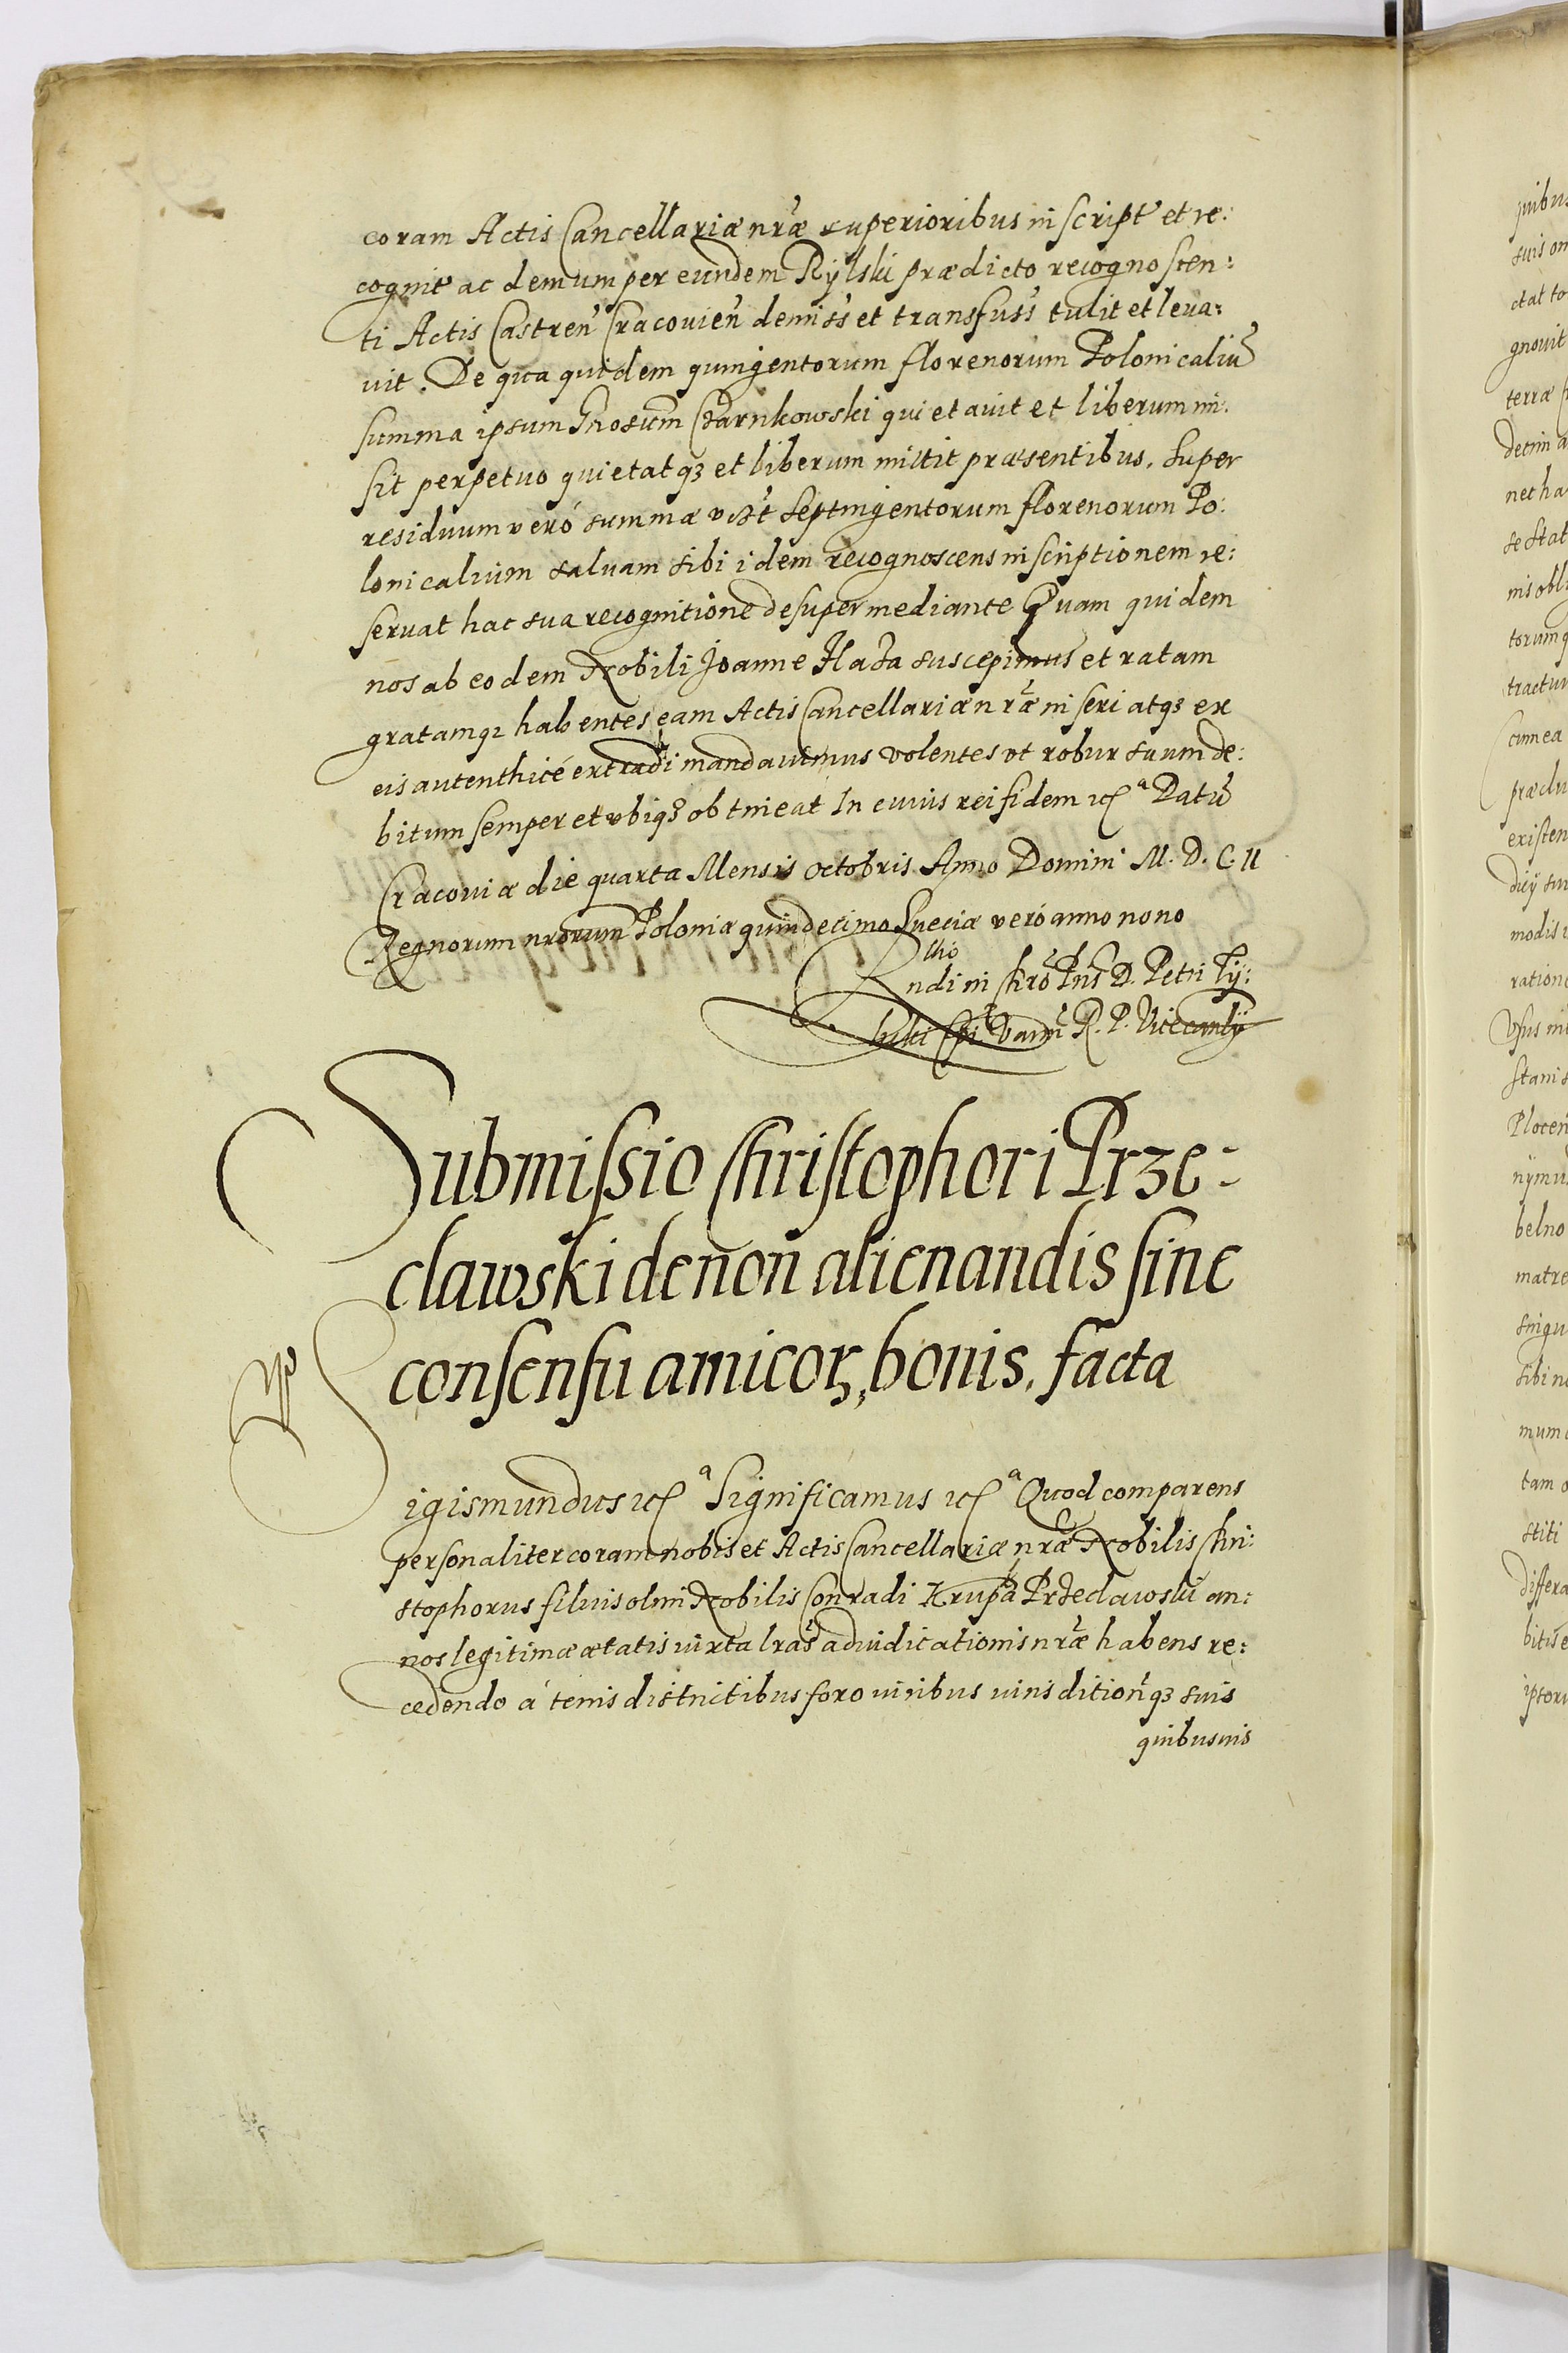 coram Actis Cancellariæ nr̃æ superioribus inscript̃ et re:
cognit̃ ac demum per eundem Rylski prædicto recognoscen:
ti Actis Castren̄ Cracovien̄ demiss̃ et transfuss̃ tulit et leva:
vit. De qua quidem quingentorum florenorum Polonicaliũ
summa ipsum Gnosum Czarnkowski quietavit et liberum mi:
sit perpetuo quietatqꝫ et liberum mittit præsentibus. Super
residuum verò summæ vizt̃ septingentorum florenorum Po:
lonicalium salvam sibi idem recognoscens inscriptionem re:
servat hac sua recognitione desuper mediante Quam quidem
nos ab eodem Nobili Joanne Haza suscepimus et ratam
gratamqꝫ habentes eam Actis Cancellariæ nr̃æ inseri atqꝫ ex
eis autenthicè extradi mandavimus volentes vt robur suum de:
bitum semper et vbiqꝫ obtineat In cuius rei fidem etc̃ª Datũ
Cracoviæ die quarta Mensis Octobris Anno Domini M. D. C. II
Regnorum nrorum Poloniæ quindecimo Sueciæ verò anno nono
Rndi in Chrõ Pris D. Petri Ty:
llio
licki Epi Varm̃ R. P. Vicecanlÿ
Submissio Christophori Prze-
clawski de non alienandis sine
consensu amicorꝫ, bonis, facta
Sigismundus etc̃ª Significamus etc̃ª Quod comparens
personaliter coram nobis et Actis Cancellariæ nr̃æ Nobilis Chri:
stophorus filius olim Nobilis Conradi Krupa Przeclawski an:
nos legitimæ ætatis iuxta lras̃ adiudicationis nr̃æ habens re:
cedendo à terris districtibus foro iuribus iurisdition̄qꝫ suis
quibusvis